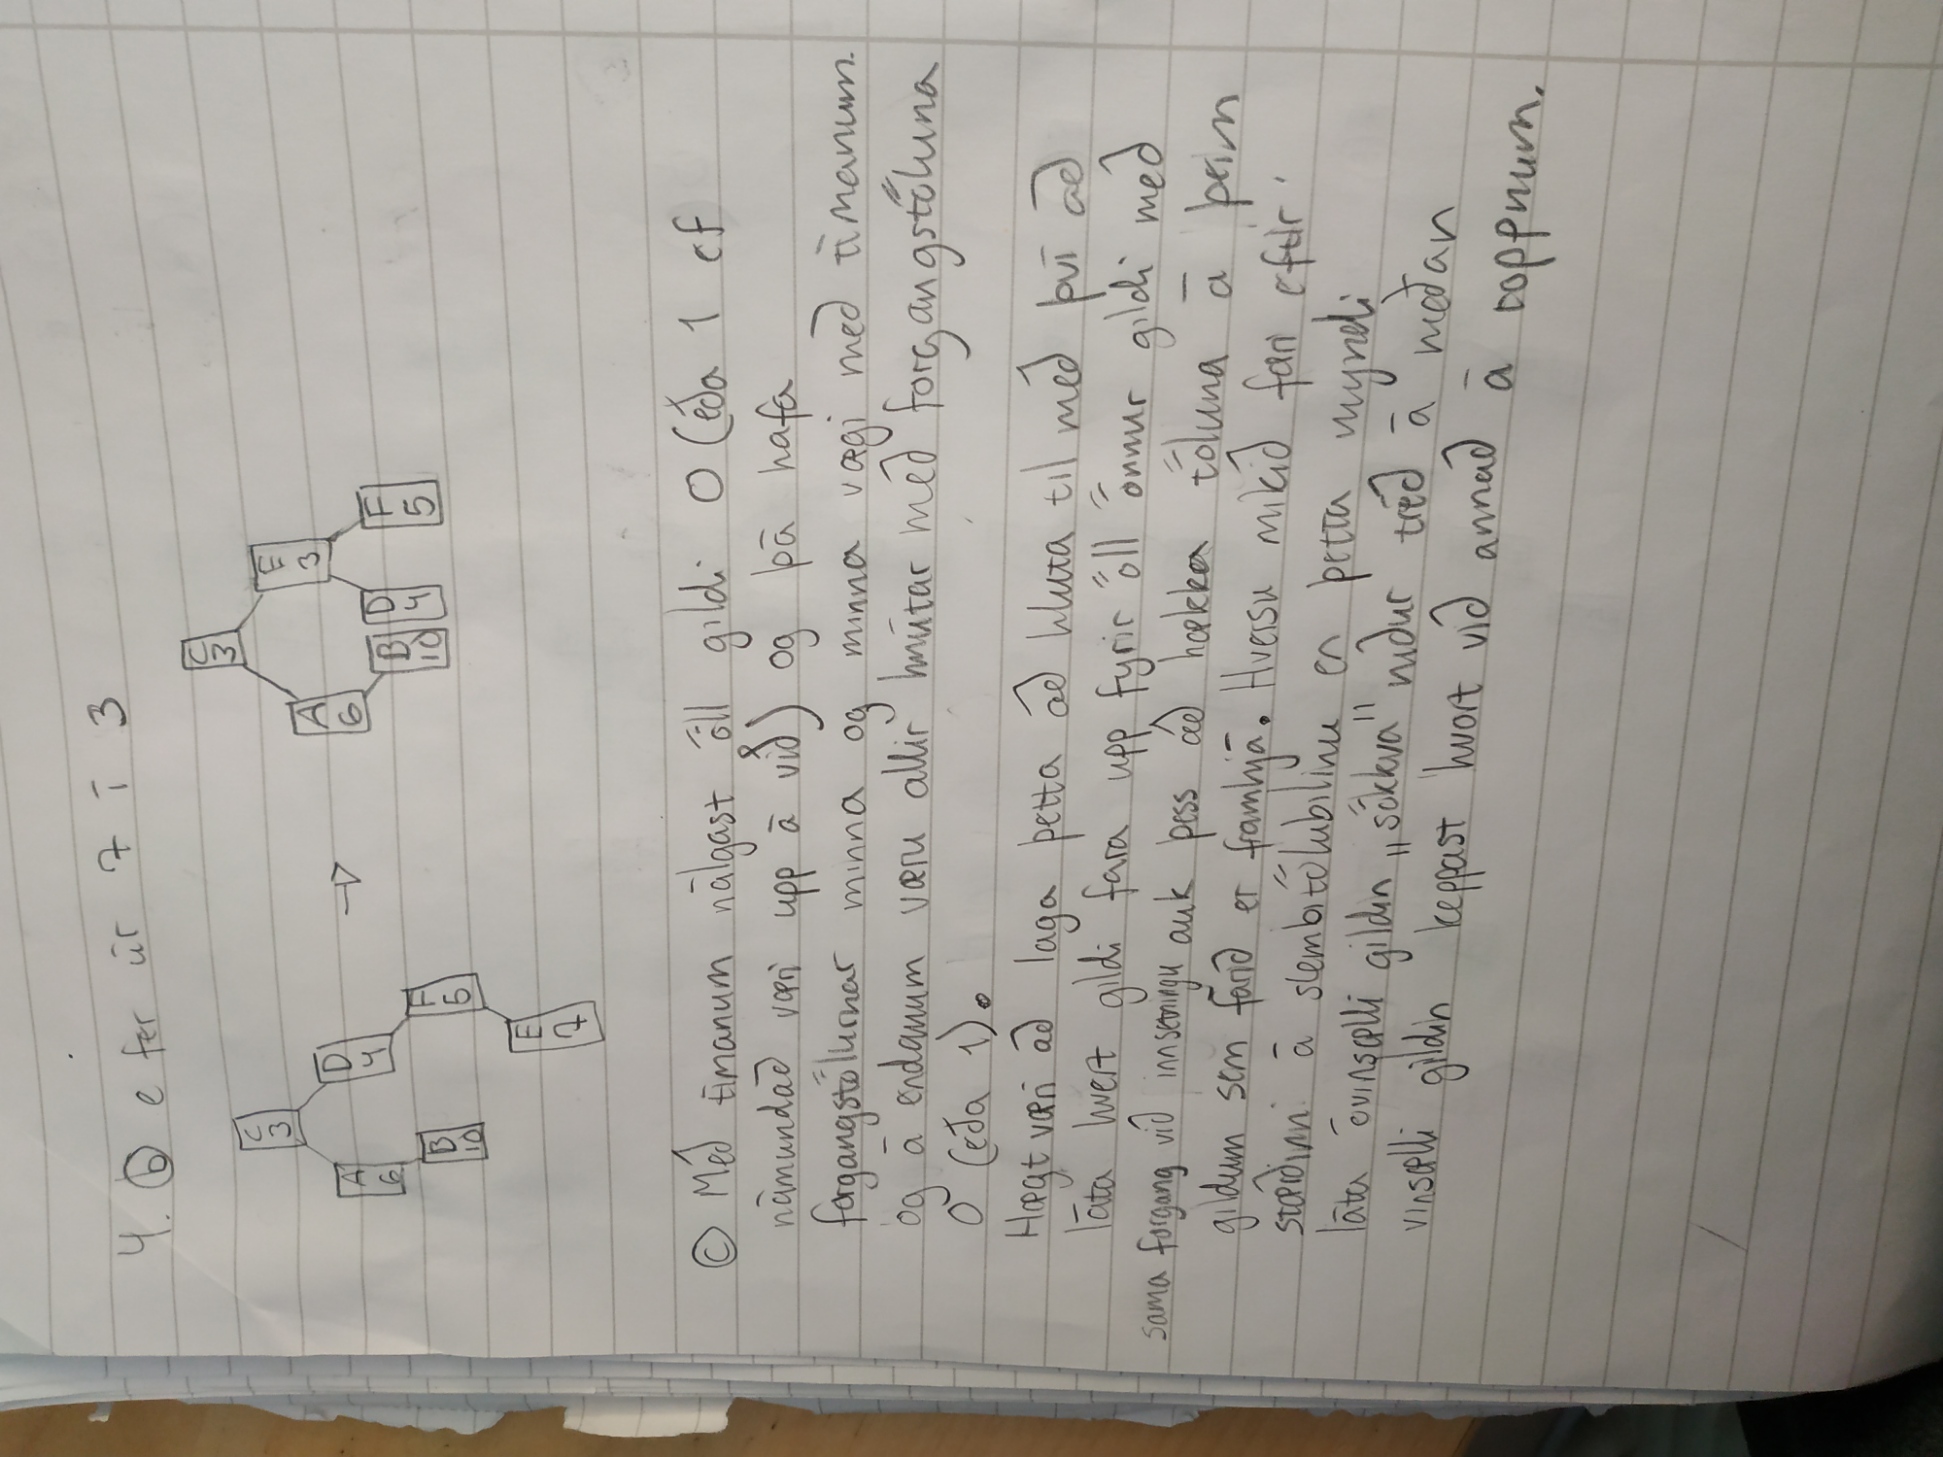 4. b e fer úr 7 í 3
C
3
A
6
D
4
B
10
F
5
E
7
→
C
3
A
6
E
3
B
10
D
4
F
5
c Með tímanum nálgast öll gildi 0 (eða 1 ef
námundað væri upp á við) og þá hafa
forgangstölurnar minna og minna vægi með tímanum.
og á endanum væru allir hnútar með forgangstöluna
0 (eða 1).
Hægt væri að laga þetta að hluta til með því að
láta hvert gildi fara upp fyrir öll önnur gildi með
sama forgang við innsetningu auk þess að hækka töluna á þeim
gildum sem farið er framhjá. Hversu mikið færi eftir
stærðinni á slembitölubilinu en þetta myndi
láta óvinsælli gildin „sökkva" niður tréð á meðan
vinsælli gildin keppast hvort við annað á toppnum.